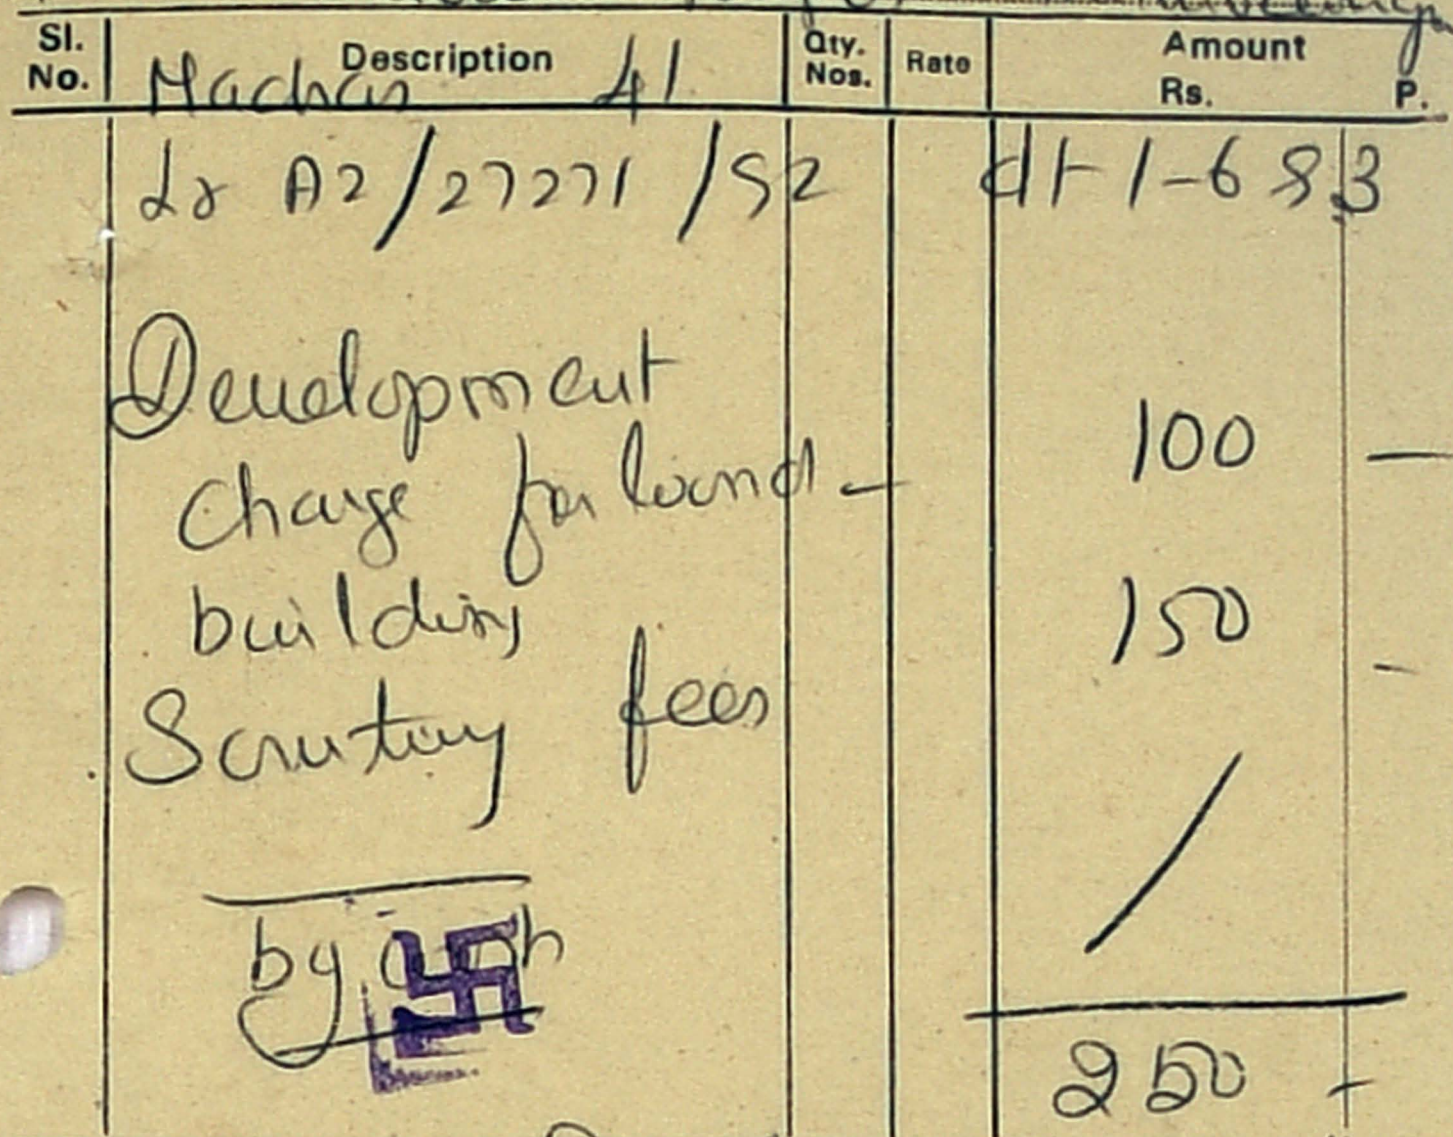 Sl. No. Description Qty. Nos. Rate Amount Rs. P.
Madras 41
Lr A2/27271/82 dt 1-6 83
Development
charge for land - 100 —
building 150 -
Scrutiny fees
by cash
250 -